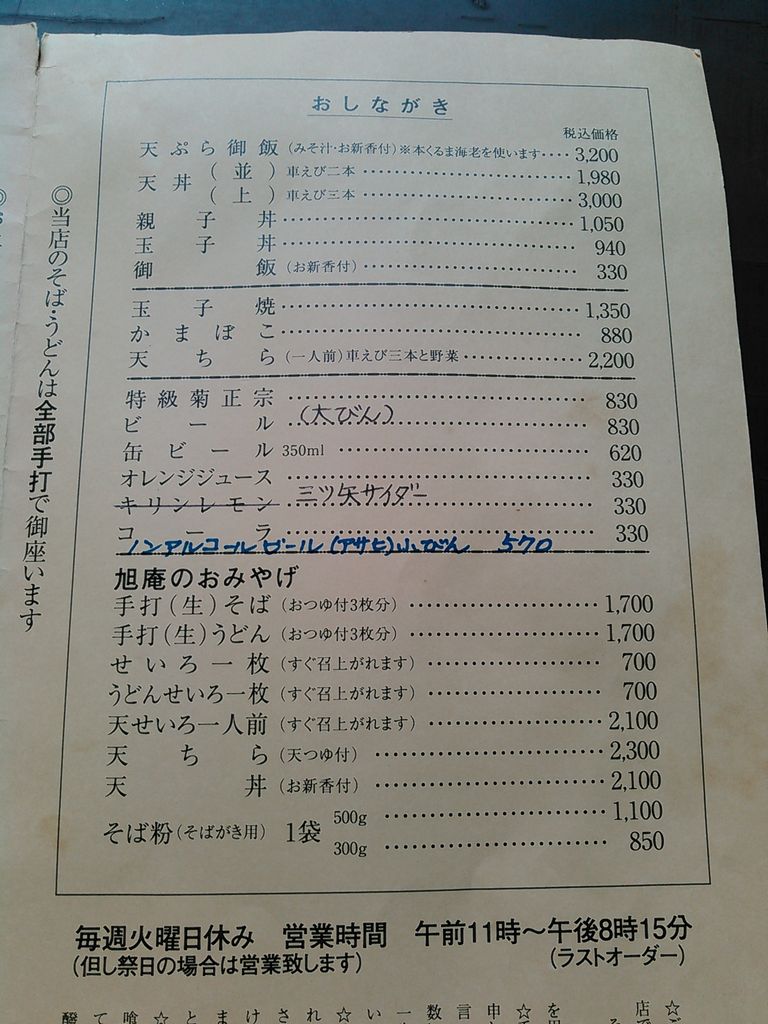 おしながき
税込価格
天ぷら御飯(みそ汁・お新香付)※本くるま海老を使います････3,200
天丼(並)車えび二本････1,980
(上)車えび三本････3,000
親子丼････1,050
玉子丼････940
御飯(お新香付)････330
玉子焼････1,350
かまぼこ････880
天ちら(一人前)車えび三本と野菜････2,200
特級菊正宗････830
ビール(大びん)････830
缶ビール 350ml････620
オレンジジュース････330
キリンレモン 三ツ矢サイダー････330
コーラ････330
ノンアルコールビール(アサヒ)小びん 570
旭庵のおみやげ
手打(生)そば(おつゆ付3枚分)････1,700
手打(生)うどん(おつゆ付3枚分)････1,700
せいろ一枚(すぐ召上がれます)････700
うどんせいろ一枚(すぐ召上がれます)････700
天せいろ一人前(すぐ召上がれます)････2,100
天ちら(天つゆ付)････2,300
天丼(お新香付)････2,100
そば粉(そばがき用) 1袋 500g････1,100
300g････850
◎当店のそば・うどんは全部手打で御座います
毎週火曜日休み 営業時間 午前11時〜午後8時15分
(但し祭日の場合は営業致します) (ラストオーダー)